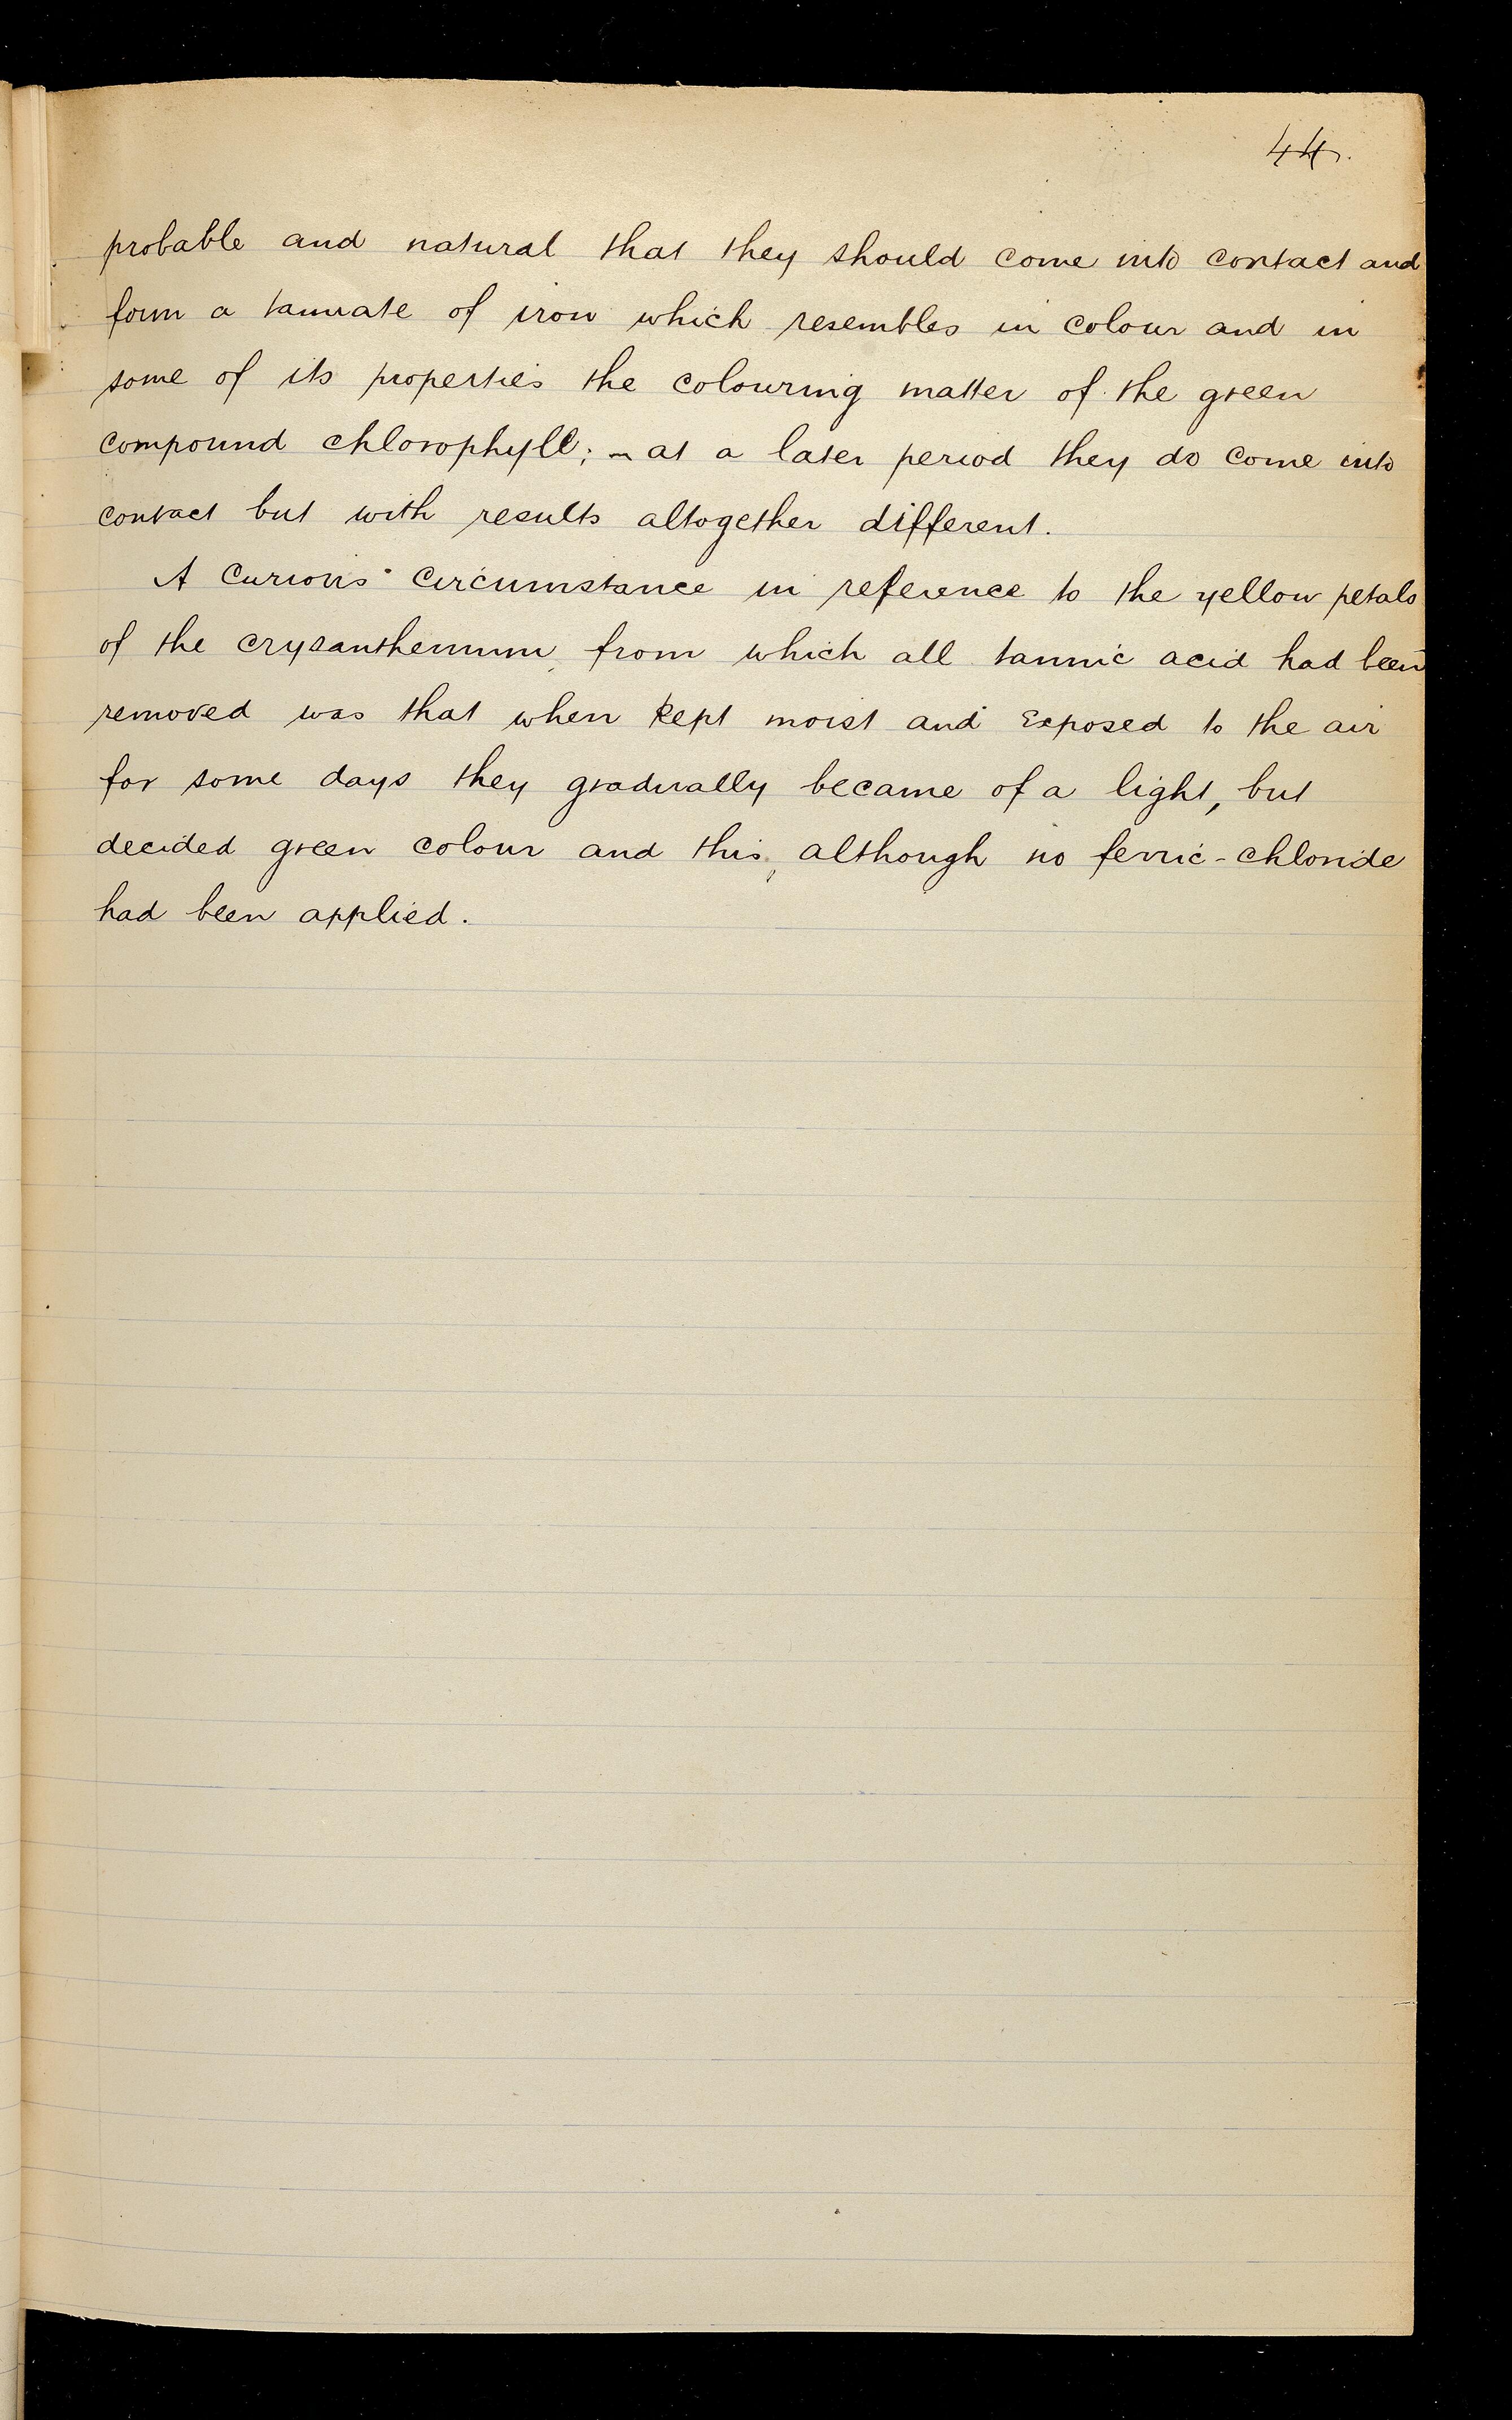 44.
probable and natural that they should come into contact and
form a tannate of iron which resembles in colour and in
some of its properties the colouring matter of the green
compound chlorophyll; - at a later period they do come into
contact but with results altogether different.
A curious circumstance in reference to the yellow petals
of the crysanthemum from which all tannic acid had been
removed was that when kept moist and exposed to the air
for some days they gradually became of a light, but
decided green colour and this, although no ferric-chloride
had been applied.